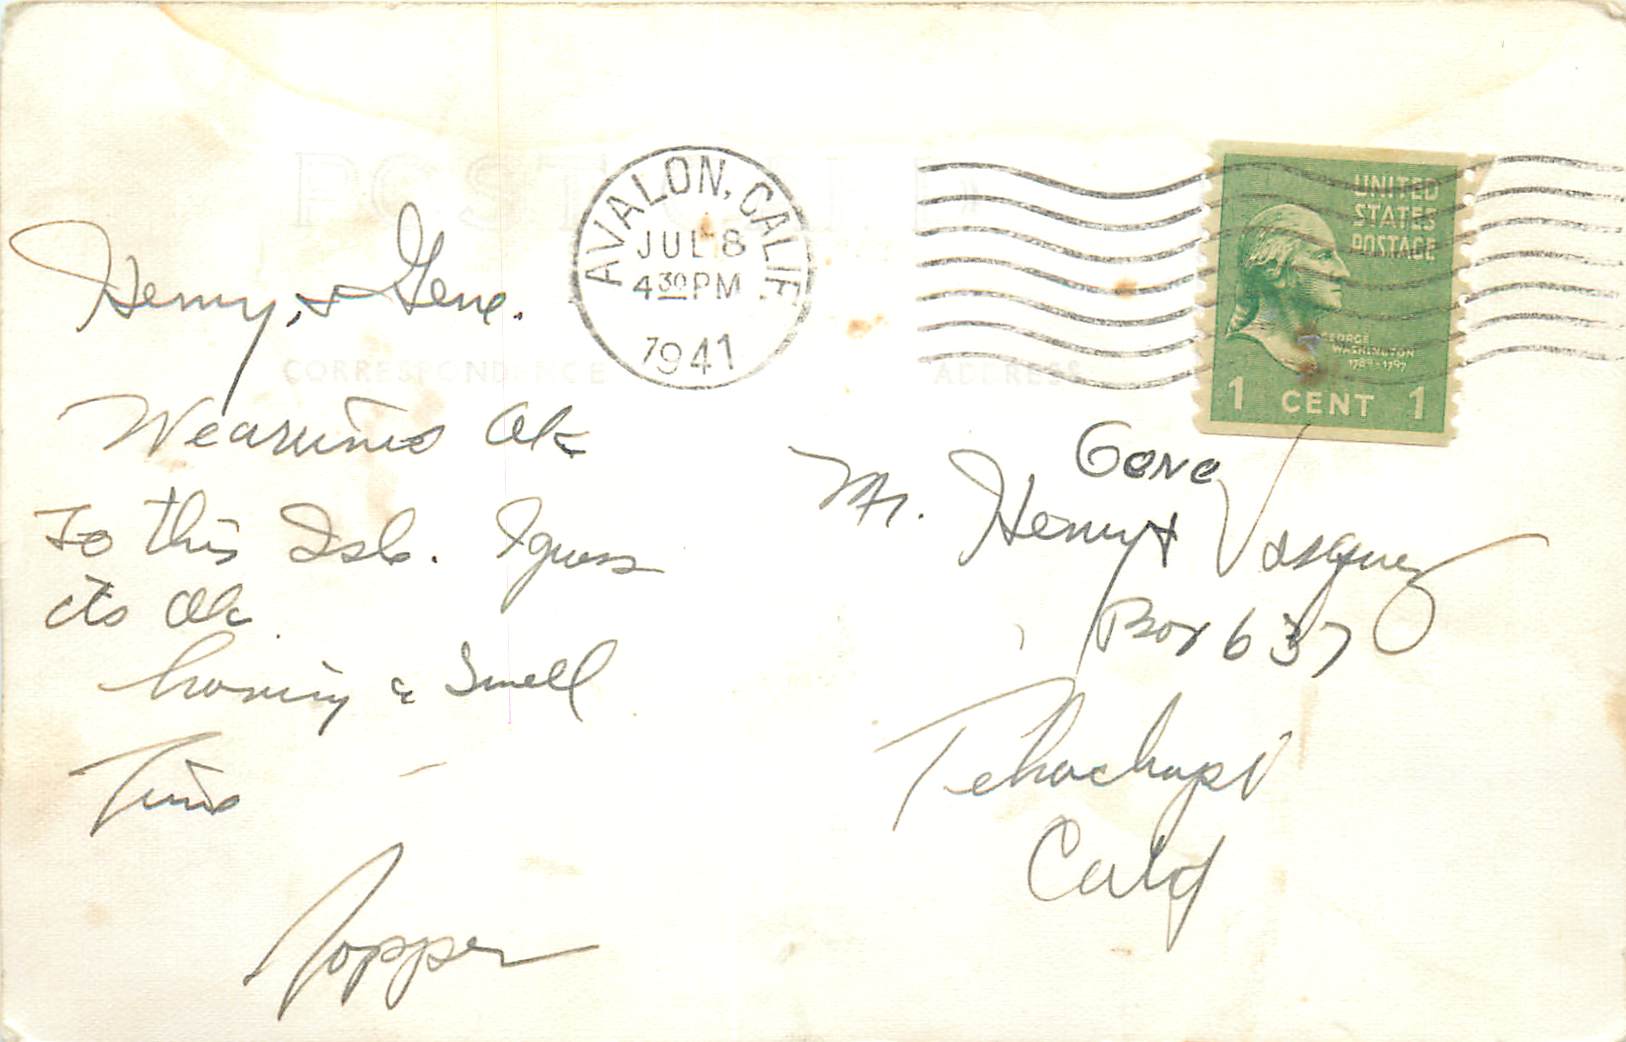 POST CARD
AVALON, CALIF.
JUL 8
4 30 PM
1941
UNITED
STATES
POSTAGE
GEORGE
WASHINGTON
1789-1797
1 CENT 1
CORRESPONDENCE
ADDRESS
Henry, & Gene.
We arrived Ok
To this Isle. I guess
its Ok
having a Swell
Time
Gene
Mr. Henry & Vasquez
Box 637
Tehachapi
Calif